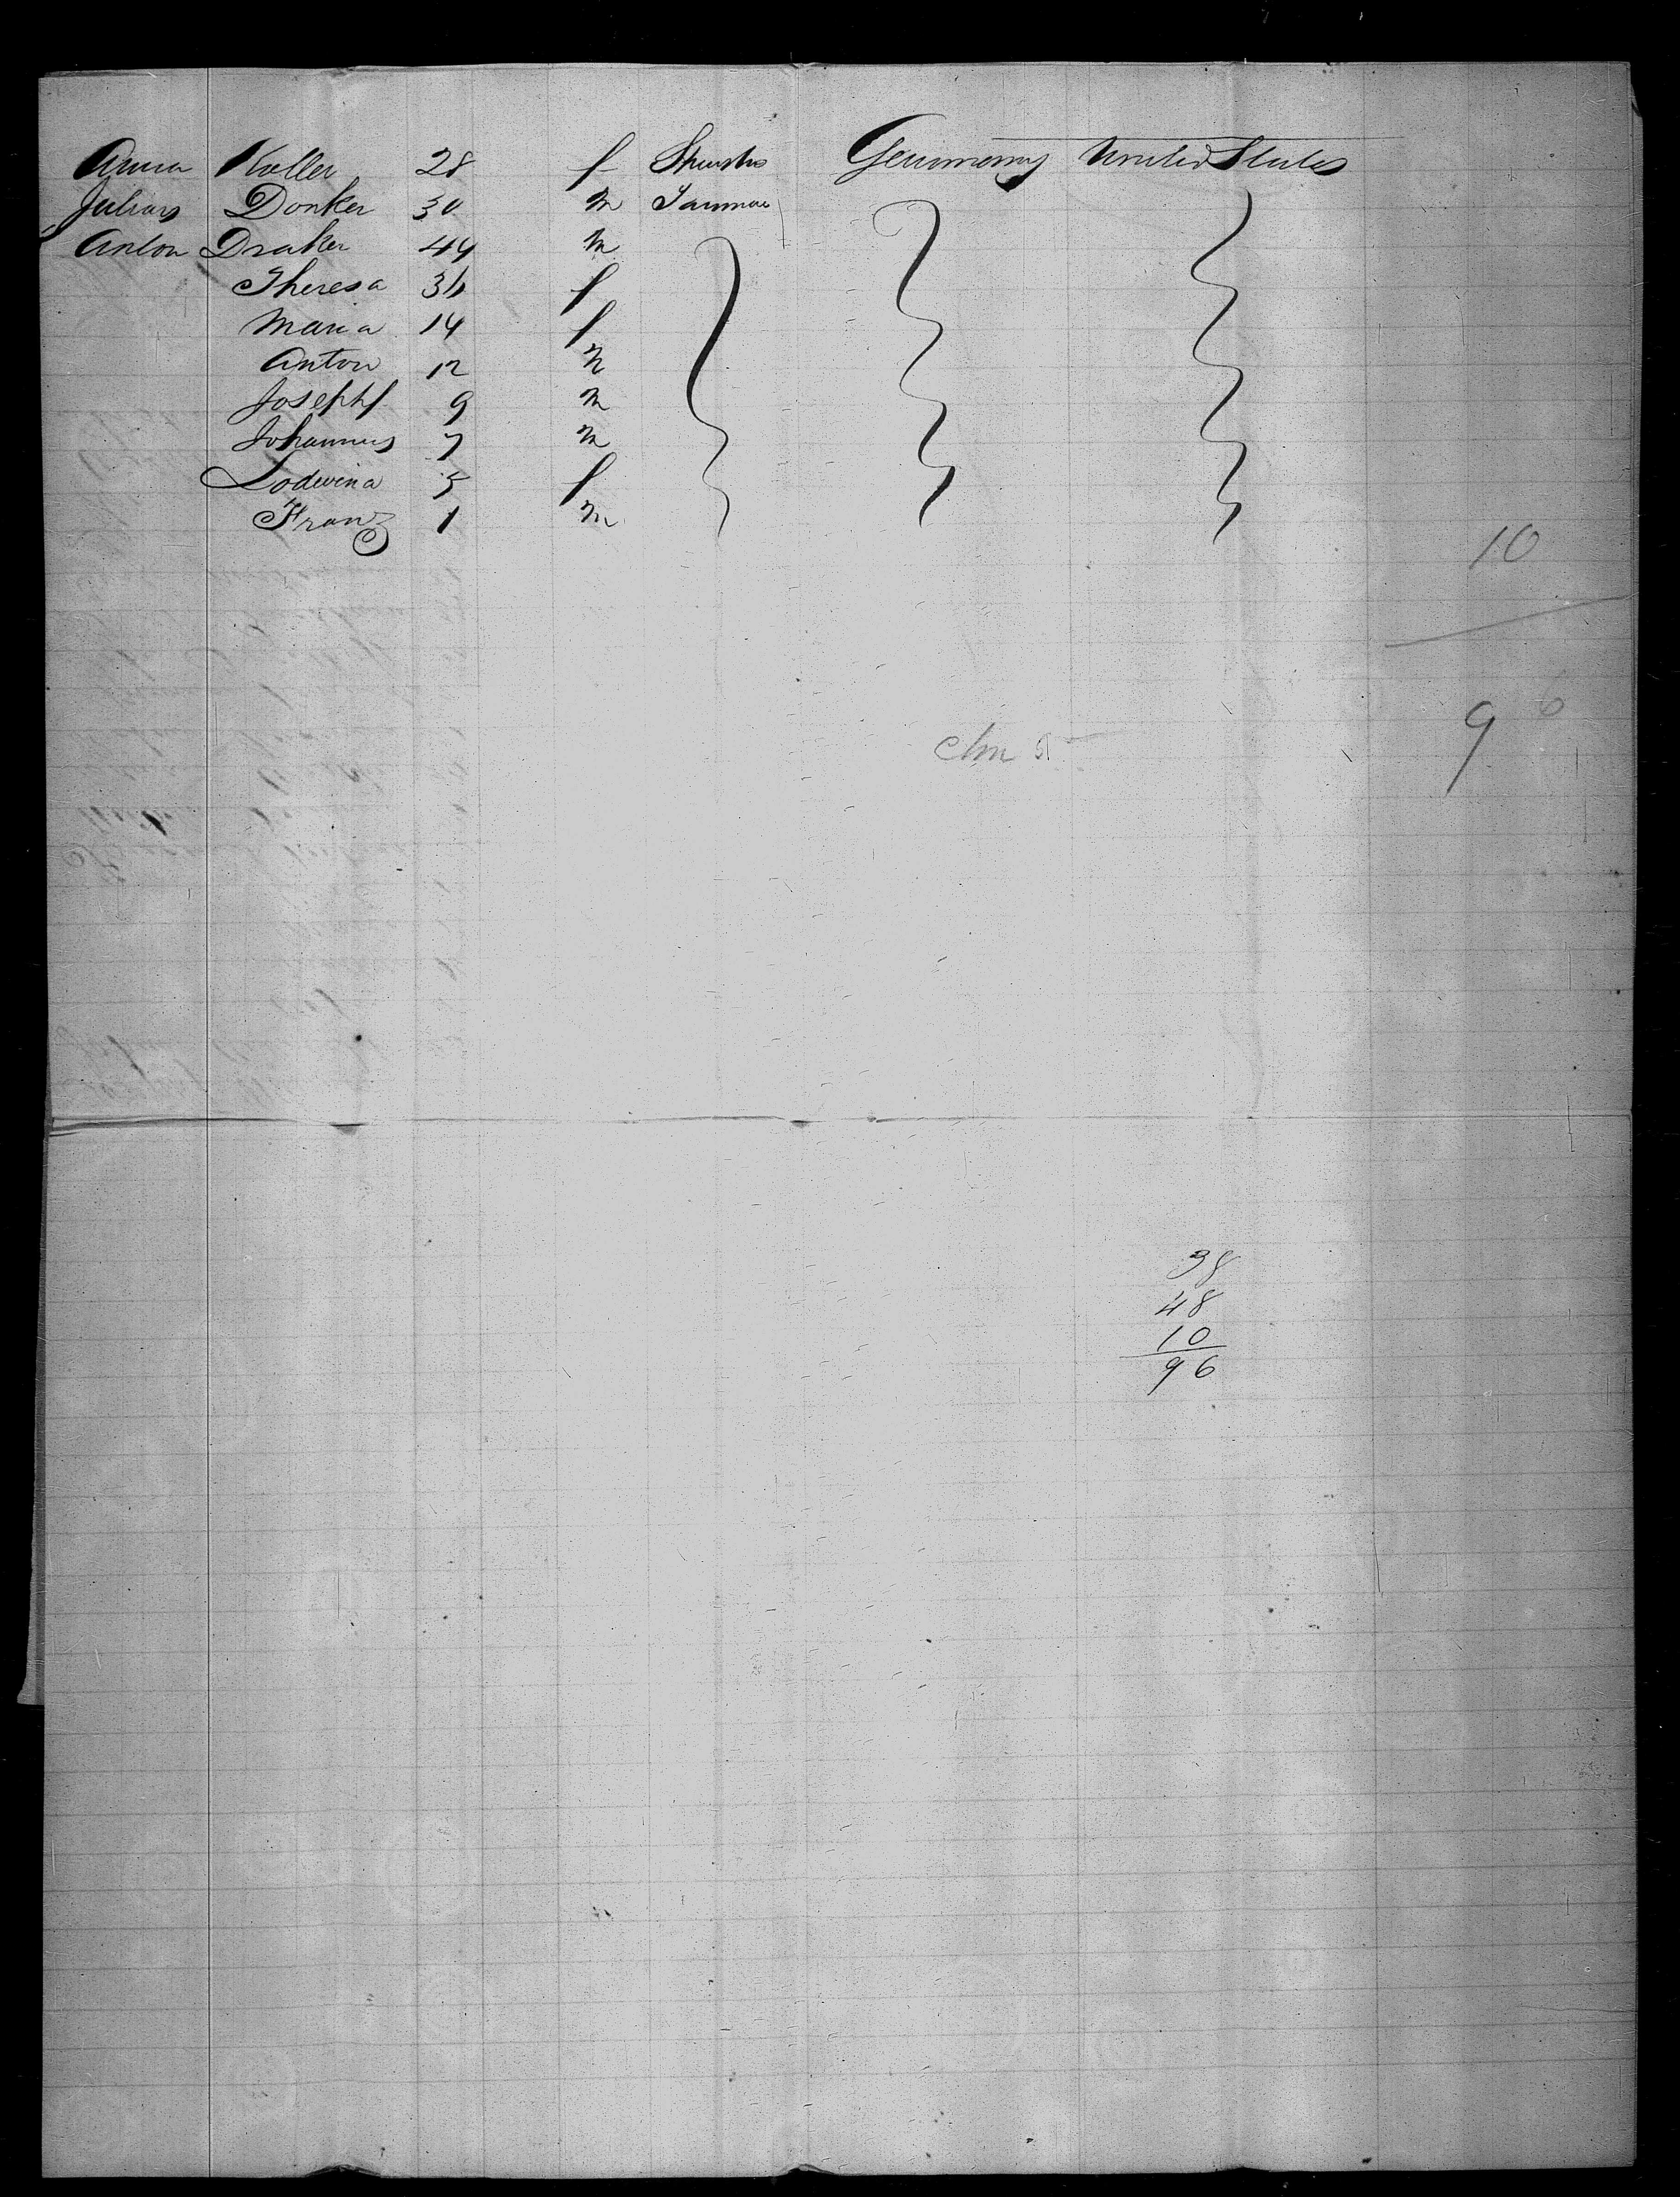 Anna Koller 28 f Germany United States
Julius Donker 30 m
Anton Draker 44 m
Theresa 36 f
Maria 14 f
Anton 12 m
Joseph 9 m
Johannes 7 m
Lodwina 5 f
Franz 1 m
10
96
38
48
10
96